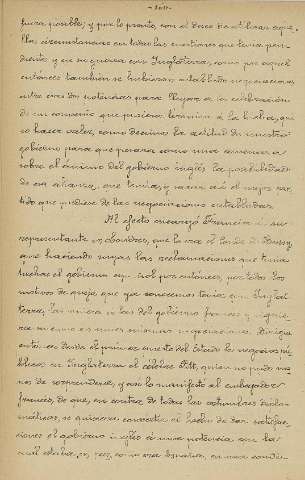 fuera posible, y por lo pronto, con el deseo de utilizar aque-
llas circunstancias en todas las cuestiones que tenía pen-
dientes y en su guerra con Inglaterra, como por aquel
entonces también se hubieran entablado negociaciones
entre estas dos potencias para llegar a la celebración
de un convenio que pusiera término a la lucha, qui-
so hacer valer, como decimos la actitud de nuestro
gobierno para que pesara como una amenaza
sobre el ánimo del gobierno inglés la posibilidad
de esa alianza, que temía, y sacar así el mejor par-
tido que pudiese de las negociaciones entabladas.
Al efecto encargó Francia a su
representante en Londres, que lo era el de Bussy,
que haciendo suyas las reclamaciones que tenía
hechas el gobierno español por entonces, por todos los
motivos de queja, que ya conocemos tenía con Inglat-
erra, las uniera a las del gobierno francés y siguie-
ra en unas mismas negociaciones. Dirigía
entonces desde el primer puesto del Estado los negocios pú-
blicos en Inglaterra el célebre Pitt, quien no pudo me-
nos de sorprenderse, y así lo manifestó al embajador
francés, de que, en contra de todas las costumbres diplo-
máticas, se quisiera convertir el hecho de dar satisfac-
ciones el gobierno inglés a una potencia con la
cual estaba en paz, como era España, en una condic-